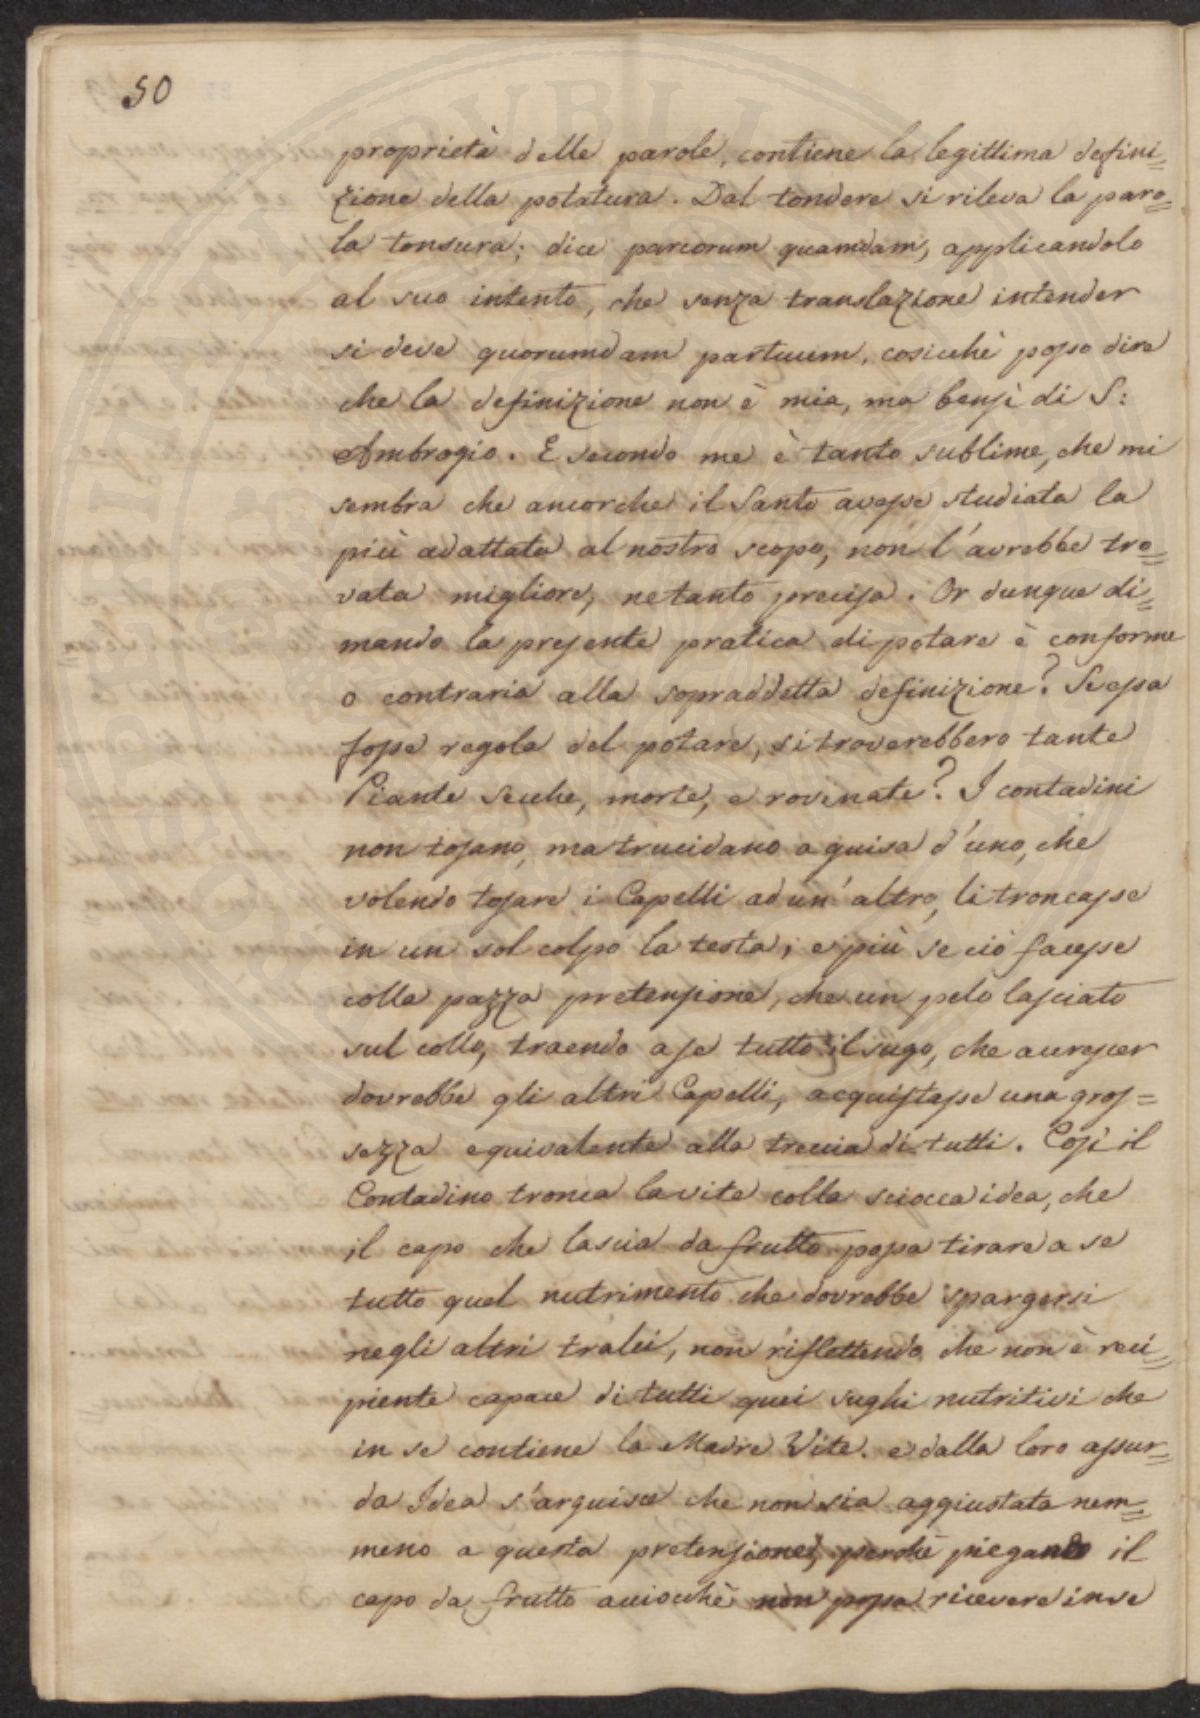 50
proprietà delle parole, contiene la legittima defini=
zione della potatura. Dal tondere si rileva la paro=
la tonsura; dice parcorum quamdam, applicandolo
al suo intento, che senza translazione intender
si deve quorumdam partuum, cosicchè posso dire
che la definizione non è mia, ma bensì di S:
Ambrogio. E secondo me è tanto sublime, che mi
sembra che ancorche il Santo avesse studiata la
più adattata al nostro scopo, non l'avrebbe tro=
vata migliore, ne tanto precisa. Or dunque di=
mando la presente pratica di potare è conforme
o contraria alla sopraddetta definizione? Se essa
fosse regola del potare, si troverebbero tante
Piante secche, morte, e rovinate? I contadini
non tosano, ma trucidano a guisa d'uno, che
volendo tosare i Capelli ad un' altro, li troncasse
in un sol colpo la testa; e più se ciò facesse
colla pazza pretensione, che un pelo lasciato
sul collo, traendo a se tutto il sugo, che accrescer
dovrebbe gli altri Capelli, acquistasse una gros=
sezza equivalente alla treccia di tutti. Così il
Contadino tronca la vite colla sciocca idea, che
il capo che lascia da frutto possa tirare a se
tutto quel nutrimento che dovrebbe spargersi
negli altri tralci, non riflettendo che non è reci=
piente capace di tutti quei sughi nutritivi che
in se contiene la Madre Vite. e dalla loro assur=
da Idea s'arguisce che non sia aggiustata nem=
meno a questa pretensione, perchè piegando il
capo da frutto acciocchè non possa ricevere in se